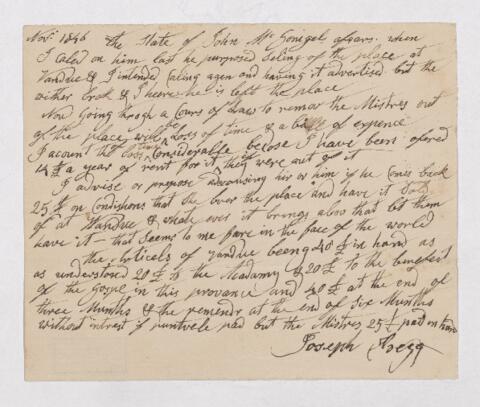 Nov.r 1846 the State of John Mc Gonigel afears. when
I caled on him last he purposed Seling of the place at
Vandue & I intended caling agen and having it advertised but the
wither Brok & I heere he is left the place
Now Going throgh a Cours of Law to remove the Mistres out
of the place will be Loss of time & a bill of expence
I acount the loss considerable becose I have been ofered
a year of rent for it if they were out of it
I advise or propose advansing hir or him if he coms back
25 £ on Condistions that She over the place and have it Sold
of at Vandue & what ever it brings above that let them
have it – that Seems to me faire in the face of the world
the Articels of vandue being 40 £ in hand as
as understood 20 £ to the Madamy & 20 £ to the benefeit
of the Gospel in this provance and 40 £ at the end of
three Munths & the remendr at the end of Six Munths
without intrest if puntvele pad but the Mistres 25 £ pad in hand
Joseph Gregg